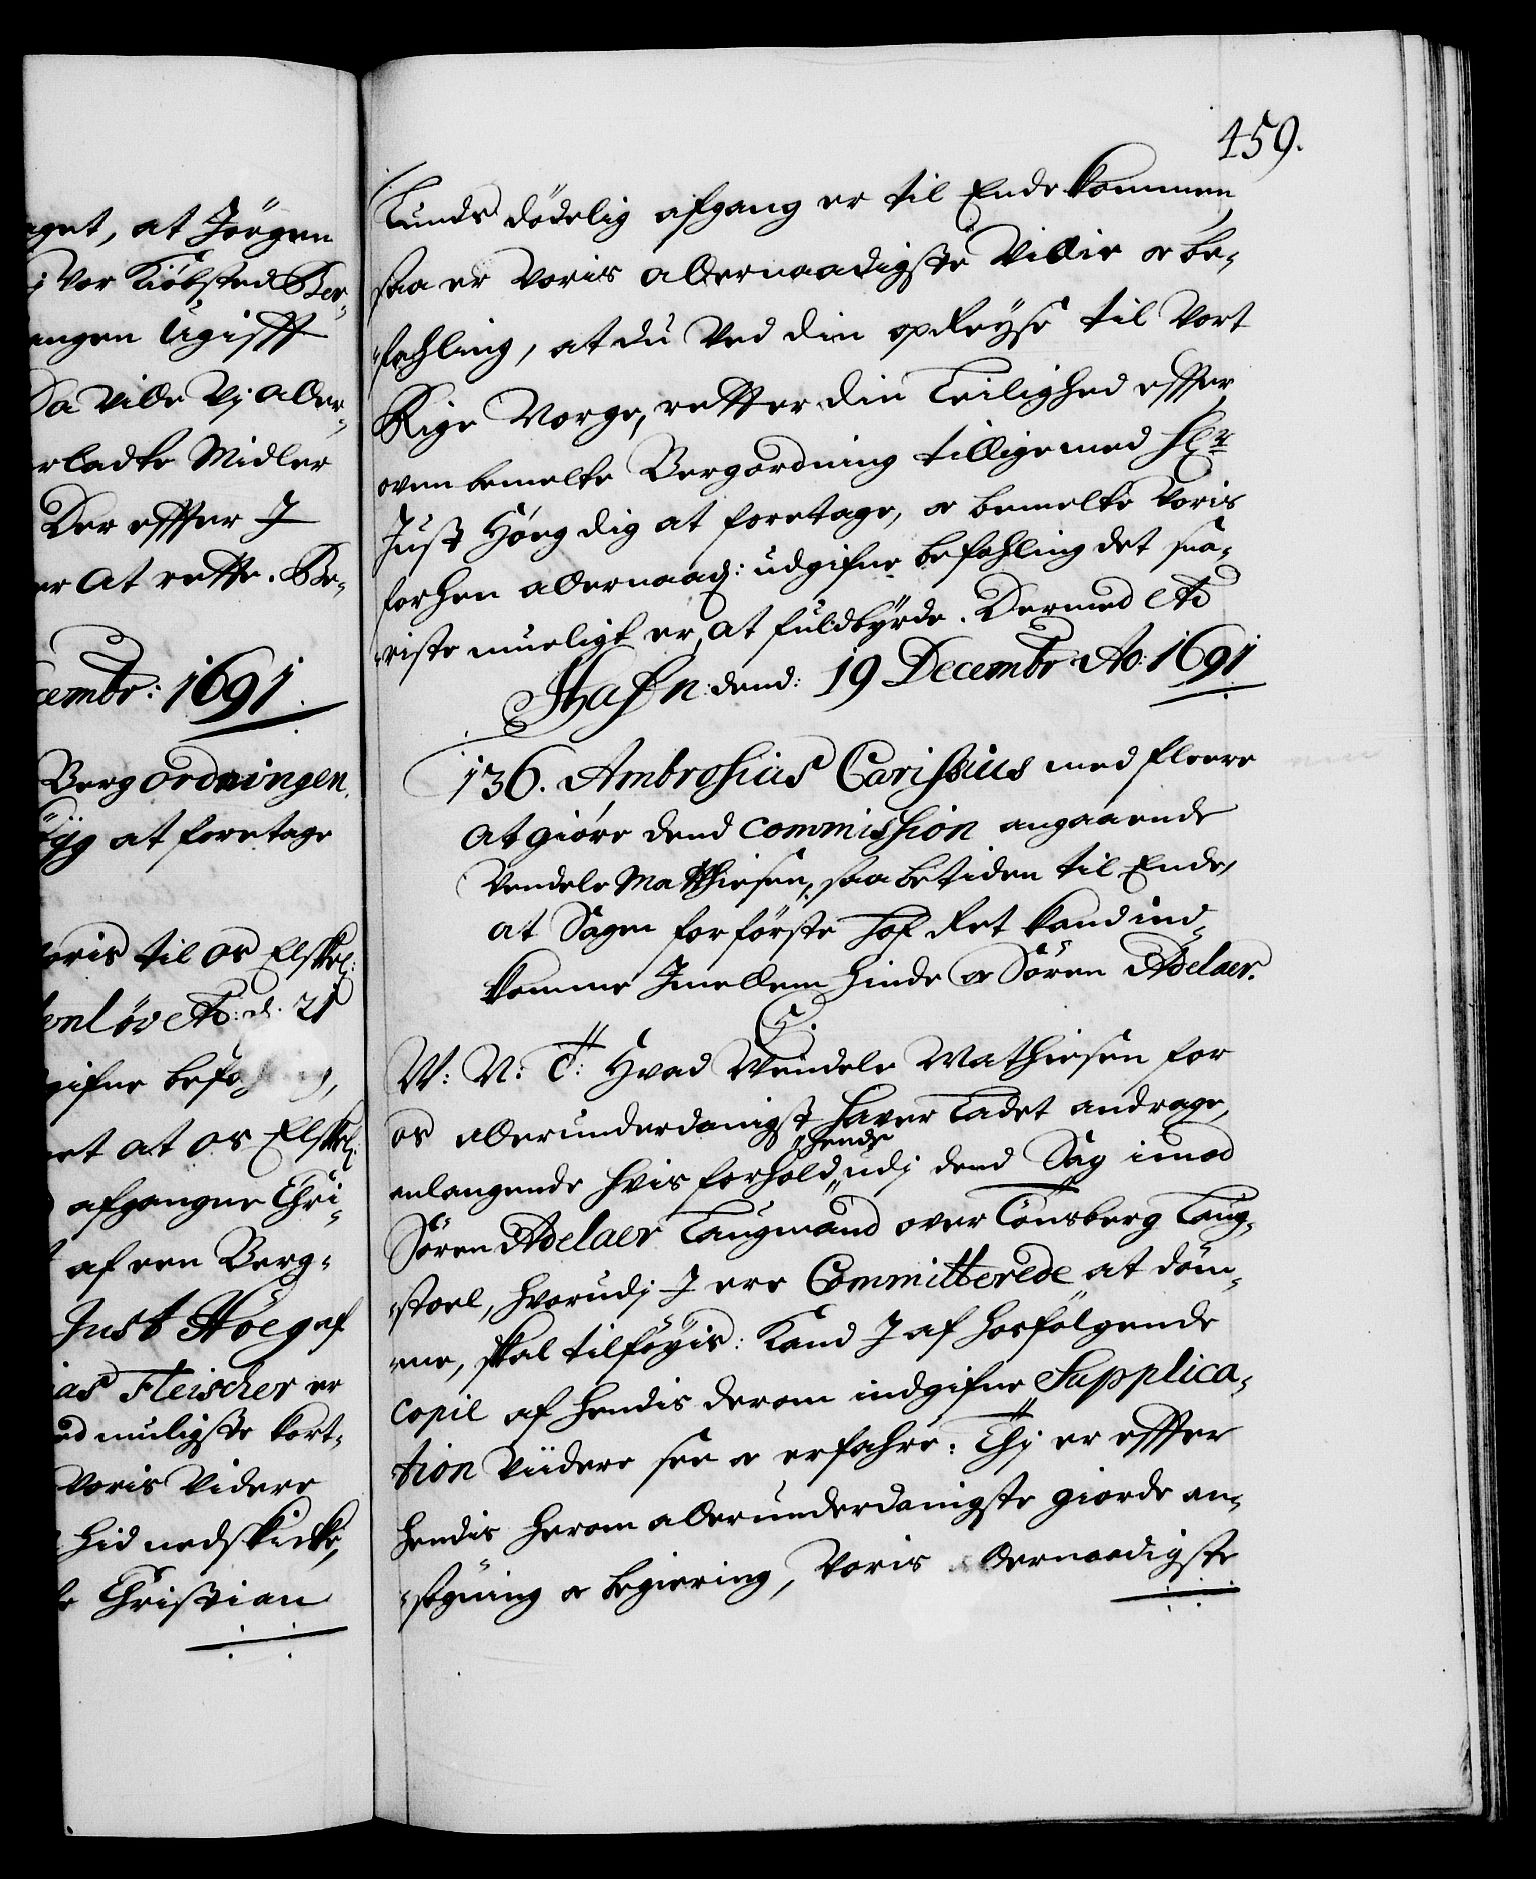 459.
aget, at Jörgen
j Vor Kiöbsted Ber-
engen Ugifft
Da Ville Vj aller-
erladte Midler
Der effter J
er at rette. Be-
cembr: 1691
Berg ordningen
at foretage
Voris til os Elskel:
enlöv etc: d. 21
gifne befahling,
et at os Elskel:
afgangne Chri-
af een Berg-
Just Höeg af
ias Fleischer er
ed muligste kort-
Voris Videre
hid nedskicke,
Christian
Lunds dödelig afgang er til Ende kommen,
saa er Voris allernaadigste Villie oc be-
fahling, at du Ved din opReyse til Vort
Rige Norge, retter din Leilighed effter,
oven bemelte Bergordning tilligemed Hr
Just Höeg dig at foretage, oc bemelte Voris
forhen allernaad: udgifne befahling det sna-
riste mueligt er, at fuldbyrde. Dermed etc
Hafn: dend: 19 Decembr Ao: 1691
136. Ambrosius Carisius med fleere
at giöre dend commission angaaende
Vendele Matthiesen, saa betiden til Ende,
at Sagen for förste Hof Ret kand ind-
komme Jmellem hinde oc Sören Adelaer.
C5.
W: V: G: Hvad Wendele Mathiesen for
os allerunderdanigst haver Ladet andrage,
anlangende hvis forhold hende udj dend Sag imod
Sören Adelaer Laugmand over Tönsberg Laug-
stoel, hvorudj J ere Committerede at döm-
me, skal tilföyis: Kand J af hosfölgende
Copie af hendis derom indgifne Supplica-
tion Viidere see oc erfahre: Thj er effter
hendis herom allerunderdanigste giorde an-
sögning oc begiering, Voris allernaadigste